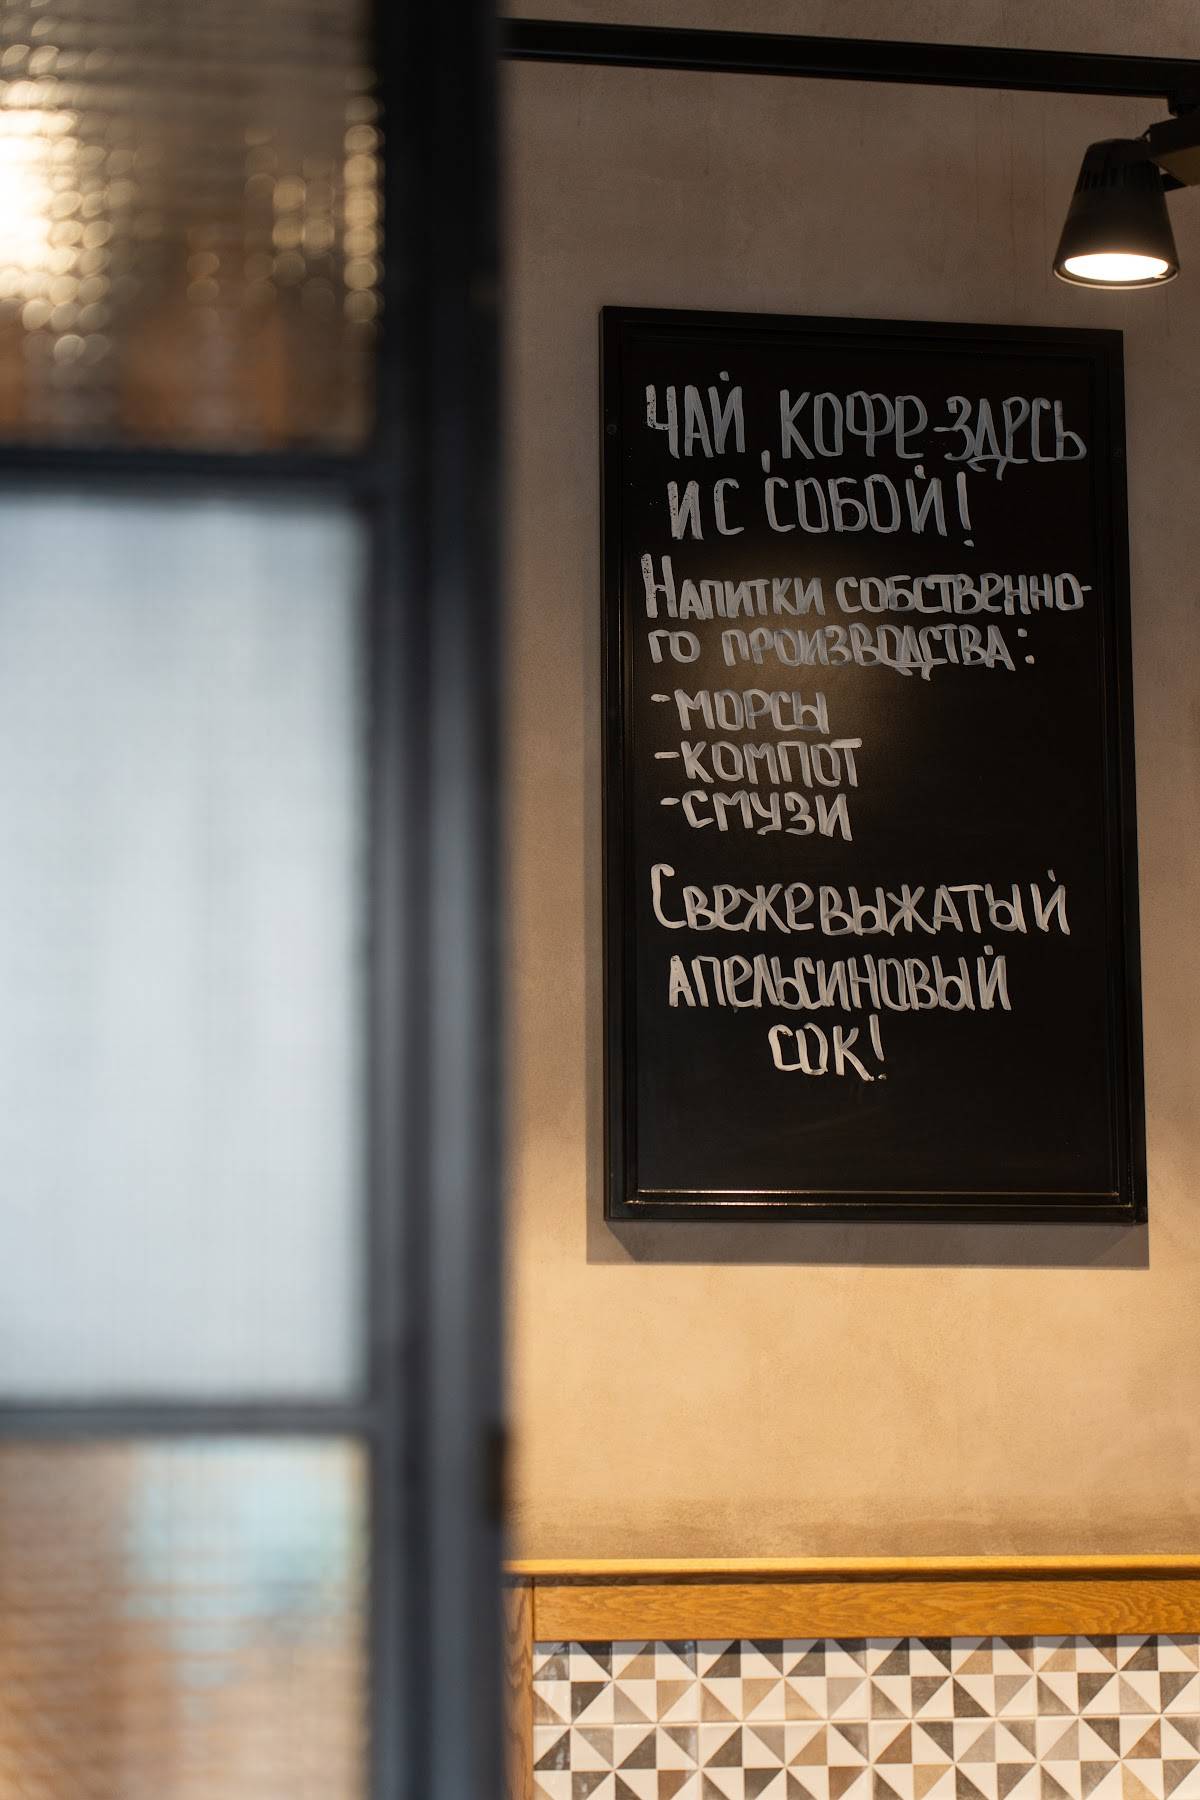 ЧАЙ, КОФЕ-ЗДЕСЬ
И С СОБОЙ!
НАПИТКИ СОБСТВЕННО-
ГО ПРОИЗВОДСТВА:
-МОРСЫ
-КОМПОТ
-СМУЗИ
СВЕЖЕВЫЖАТЫЙ
АПЕЛЬСИНОВЫЙ
СОК!